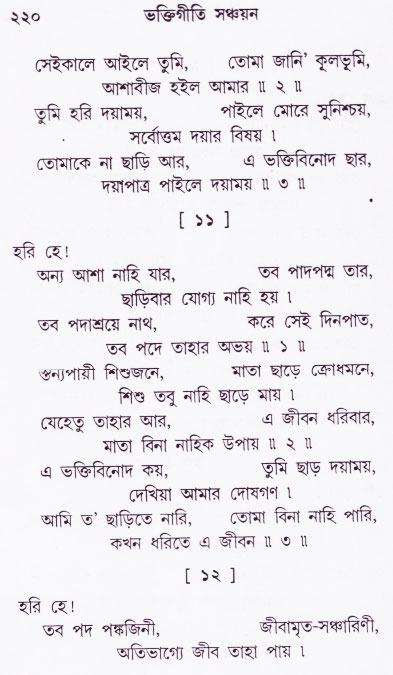 ২২০ ভক্তিগীতি সঞ্চয়ন
সেইকালে আইলে তুমি, তোমা জানি' কূলভূমি,
আশাবীজ হইল আমার ॥ ২ ॥
তুমি হরি দয়াময়, পাইলে মোরে সুনিশ্চয়,
সর্বোত্তম দয়ার বিষয় ।
তোমাকে না ছাড়ি আর, এ ভক্তিবিনোদ ছার,
দয়াপাত্র পাইলে দয়াময় ॥ ৩ ॥
[ ১১ ]
হরি হে!
অন্য আশা নাহি যার, তব পাদপদ্ম তার,
ছাড়িবার যোগ্য নাহি হয় ।
তব পদাশ্রয়ে নাথ, করে সেই দিনপাত,
তব পদে তাহার অভয় ॥ ১ ॥
স্তন্যপায়ী শিশুজনে, মাতা ছাড়ে ক্রোধমনে,
শিশু তবু নাহি ছাড়ে মায় ।
যেহেতু তাহার আর, এ জীবন ধরিবার,
মাতা বিনা নাহিক উপায় ॥ ২ ॥
এ ভক্তিবিনোদ কয়, তুমি ছাড় দয়াময়,
দেখিয়া আমার দোষগণ ।
আমি ত' ছাড়িতে নারি, তোমা বিনা নাহি পারি,
কখন ধরিতে এ জীবন ॥ ৩ ॥
[ ১২ ]
হরি হে!
তব পদ পঙ্কজিনী, জীবামৃত-সঞ্চারিণী,
অতিভাগ্যে জীব তাহা পায় ।